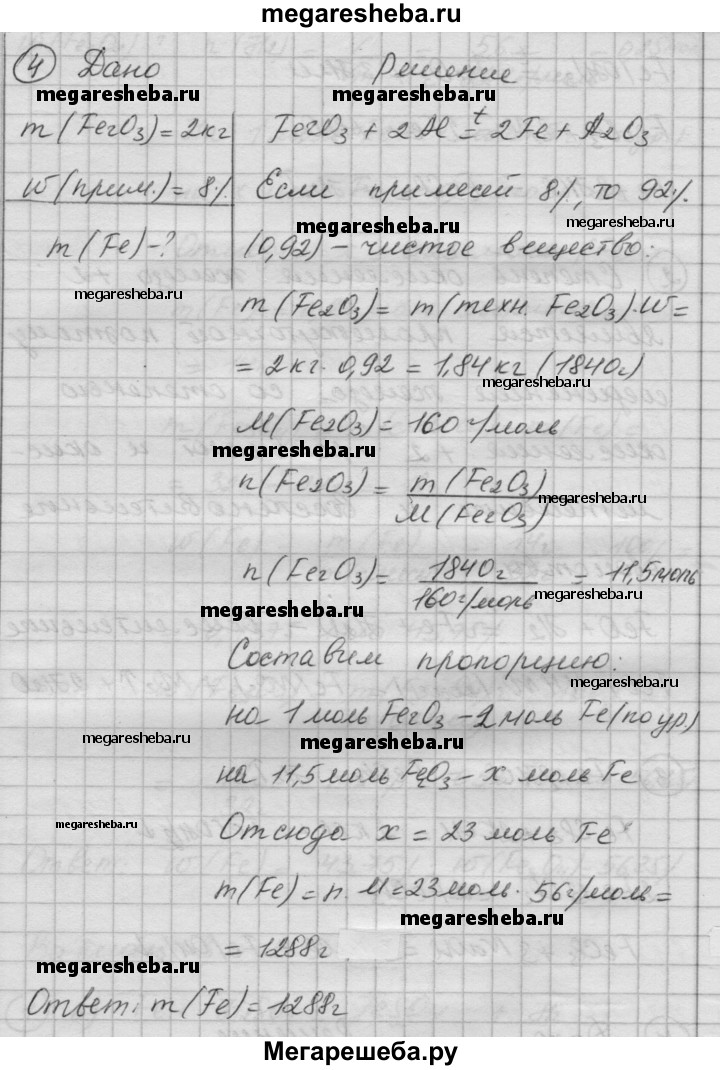 megaresheba.ru
4 Дано Решение
megaresheba.ru megaresheba.ru
m(Fe2O3)=2кг Fe2O3 + 2Al =t 2Fe + Al2O3
w(прим.)=8% Если примесей 8%, то 92%
megaresheba.ru megaresheba.ru
m(Fe)-? (0,92) – чистое вещество:
megaresheba.ru
m(Fe2O3) = m(техн. Fe2O3)·W=
= 2кг·0,92 = 1,84кг (1840г)
megaresheba.ru
M(Fe2O3) = 160 г/моль
megaresheba.ru
n(Fe2O3) = m(Fe2O3)
megaresheba.ru
M(Fe2O3)
n(Fe2O3) = 1840г = 11,5моль
160г/моль megaresheba.ru
megaresheba.ru
Составим пропорцию:
megaresheba.ru
на 1моль Fe2O3 – 2моль Fe (по ур)
megaresheba.ru megaresheba.ru
на 11,5моль Fe2O3 – x моль Fe
megaresheba.ru
Отсюда x = 23 моль Fe
m(Fe) = n·M = 23моль·56г/моль =
megaresheba.ru
= 1288г
megaresheba.ru
Ответ: m(Fe) = 1288г
Мегарешеба.ру